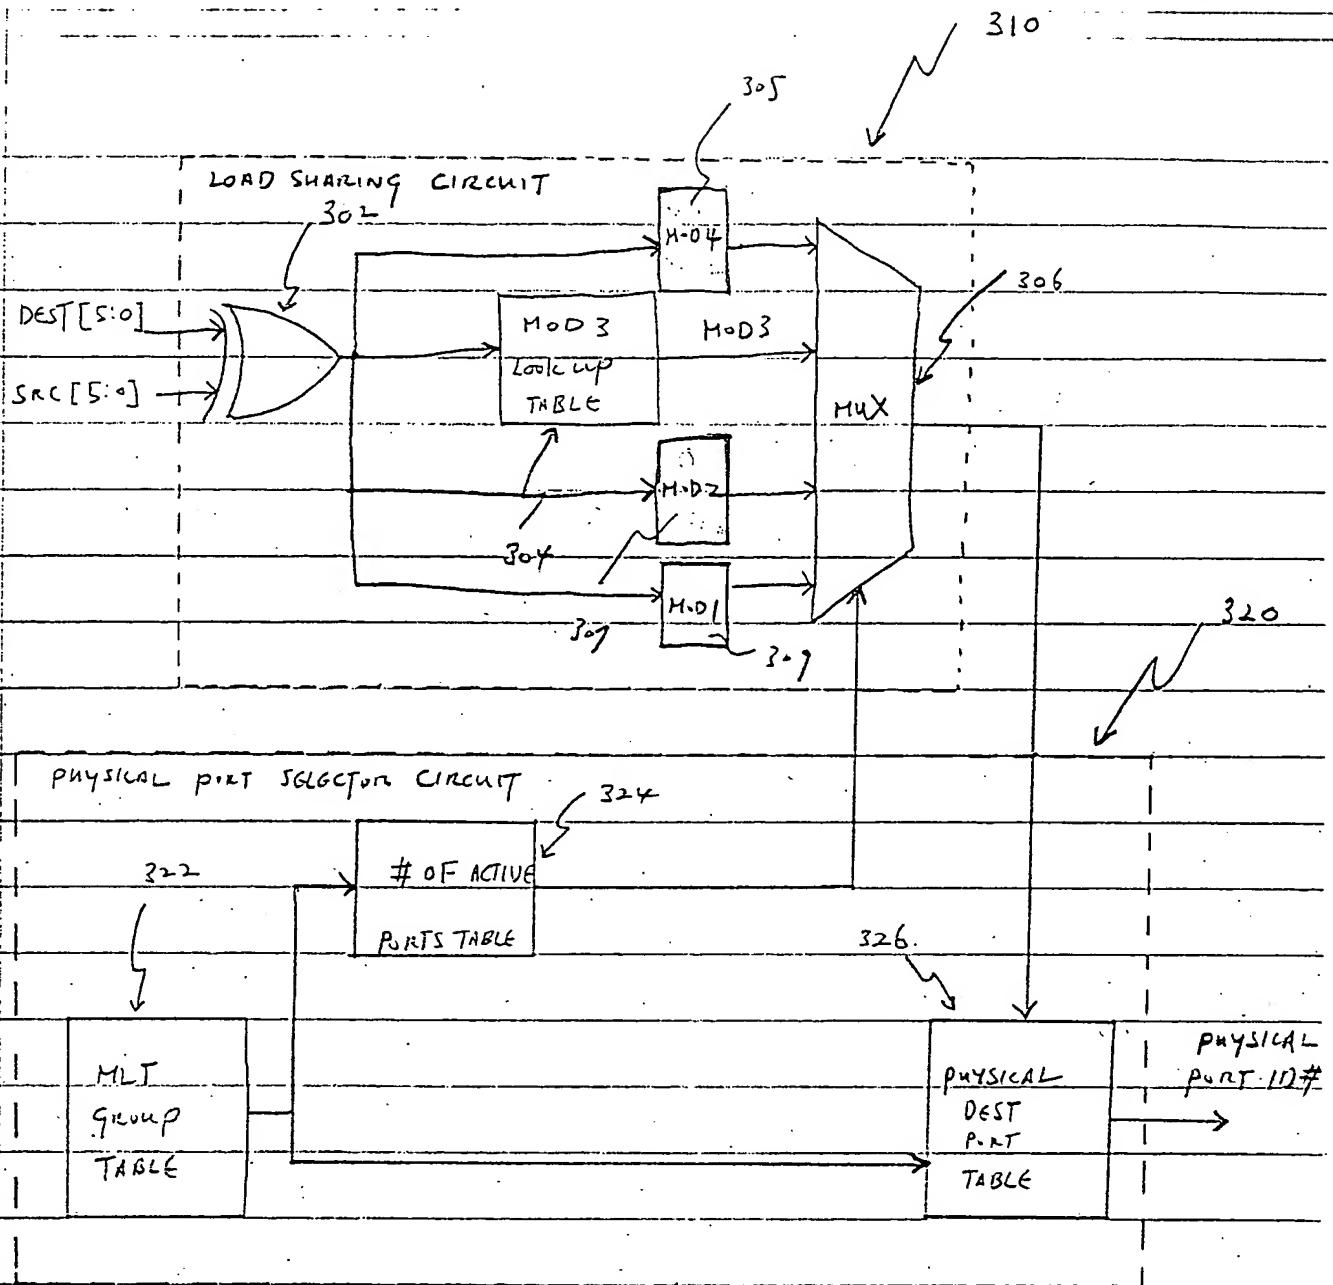 310
305
LOAD SHARING CIRCUIT
302
MOD4
306
DEST [5:0]
MOD 3
LOOK UP
TABLE
MOD3
SRC [5:0]
MUX
MOD2
304
MOD1
307
309
320
PHYSICAL PORT SELECTOR CIRCUIT
324
322
# OF ACTIVE
PORTS TABLE
326.
MLT
GROUP
TABLE
PHYSICAL
DEST
PORT
TABLE
PHYSICAL
PORT ID#